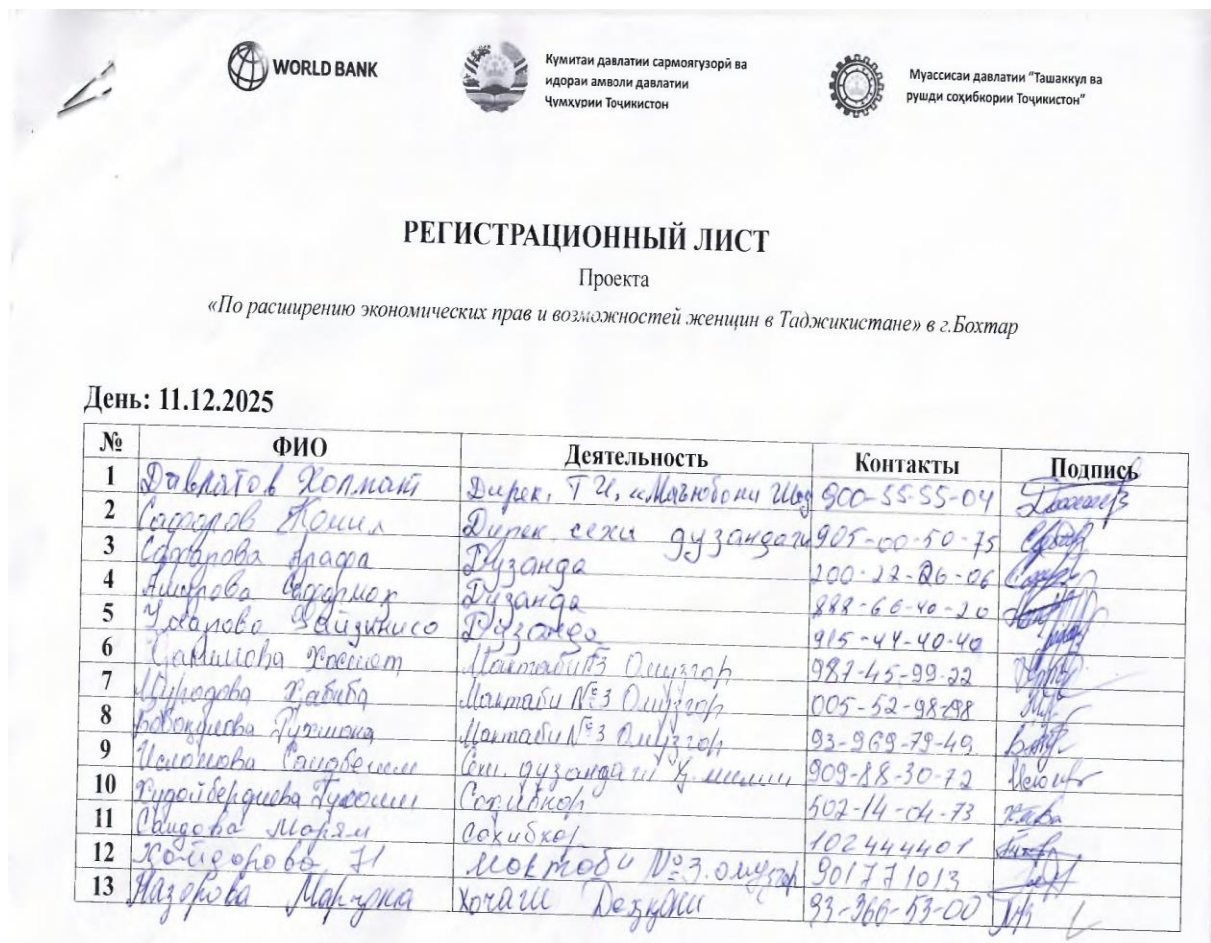 WORLD BANK
Кумитаи давлатии сармоягузорӣ ва
идораи амволи давлатии
Ҷумҳурии Тоҷикистон
Муассисаи давлатии "Ташаккул ва
рушди соҳибкории Тоҷикистон"
РЕГИСТРАЦИОННЫЙ ЛИСТ
Проекта
«По расширению экономических прав и возможностей женщин в Таджикистане» в г.Бохтар
День: 11.12.2025
№ ФИО Деятельность Контакты Подпись
1 Давлатов Холмат Дирек, 900-55-55-04
2 Сафаров Комил Дирек сехи дузандаги 905-00-50-75
3 Сафарова Арафа Дузанда 200-22-26-06
4 Амирова Сафармох Дузанда 888-66-40-20
5 Умарова Зайдинисо Дузанда 915-44-40-40
6 Хакимова Хосият Мактаби №3 Омузгор 987-45-99-22
7 Муродова Хабиба Мактаби №3 Омузгор 005-52-98-98
8 Бобокулова Мактаби №3 Омузгор 93-969-79-49
9 Исломова Саидбегим Сехи дузандаги миллии 909-88-30-72
10 Худойбердиева Соҳибкор 502-14-04-73
11 Саидова Марям Сохибкор 102444401
12 Хайдарова Мактаби №3. омузгор 901771013
13 Назарова Марҷона Хоҷагии Деҳқони 93-366-53-00